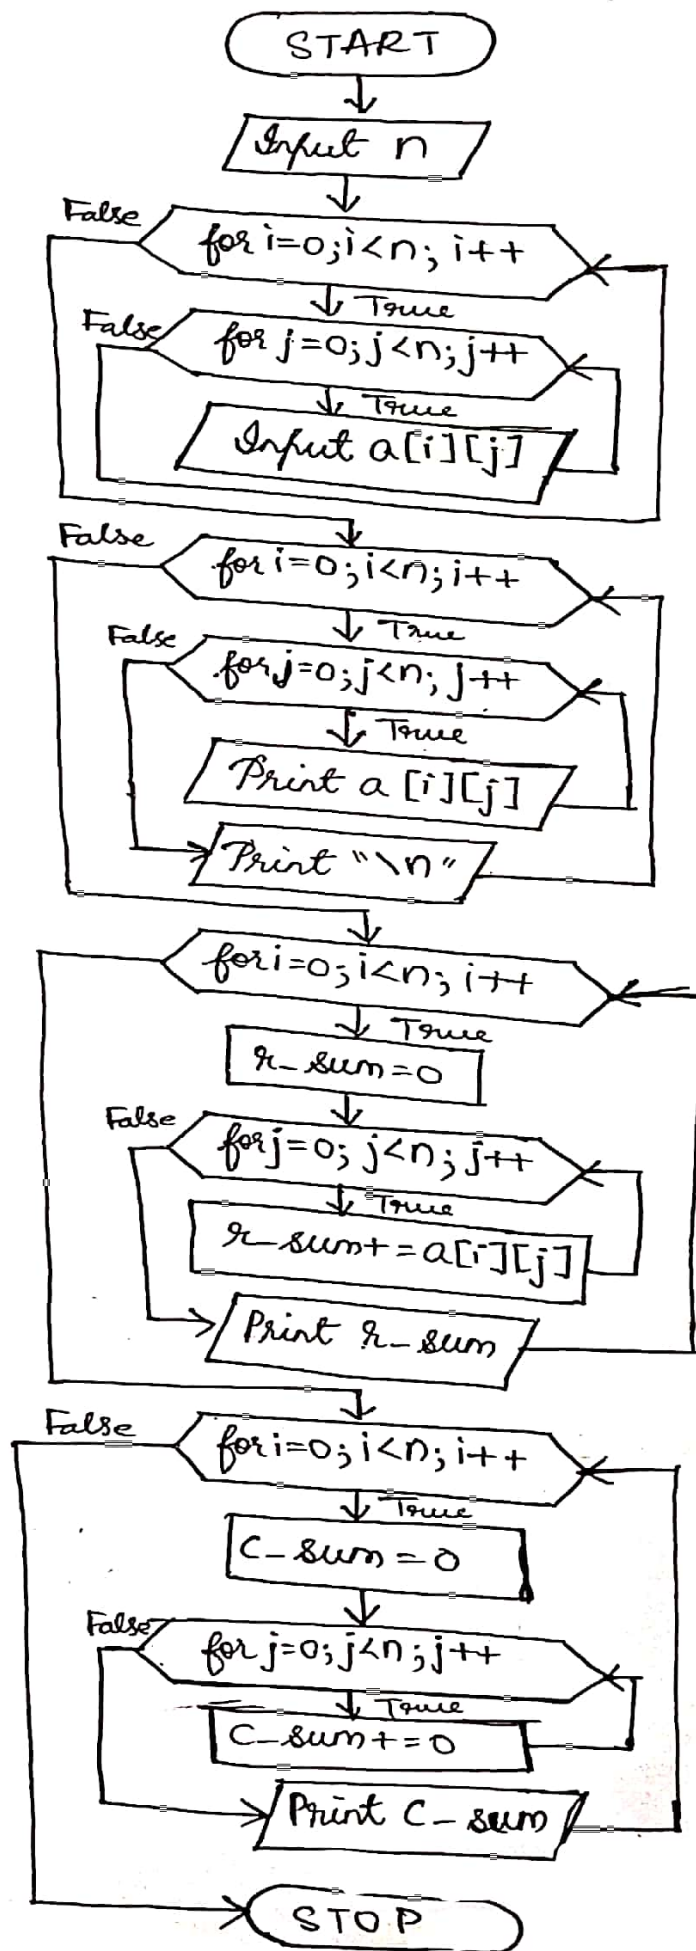 START
Input n
False
for i=0; i<n; i++
True
False
for j=0; j<n; j++
True
Input a[i][j]
False
for i=0; i<n; i++
True
False
for j=0; j<n; j++
True
Print a [i][j]
Print "\n"
for i=0; i<n; i++
True
r_sum=0
False
for j=0; j<n; j++
True
r_sum+=a[i][j]
Print r_sum
False
for i=0; i<n; i++
True
C_sum=0
False
for j=0; j<n; j++
True
C_sum+=0
Print C_sum
STOP